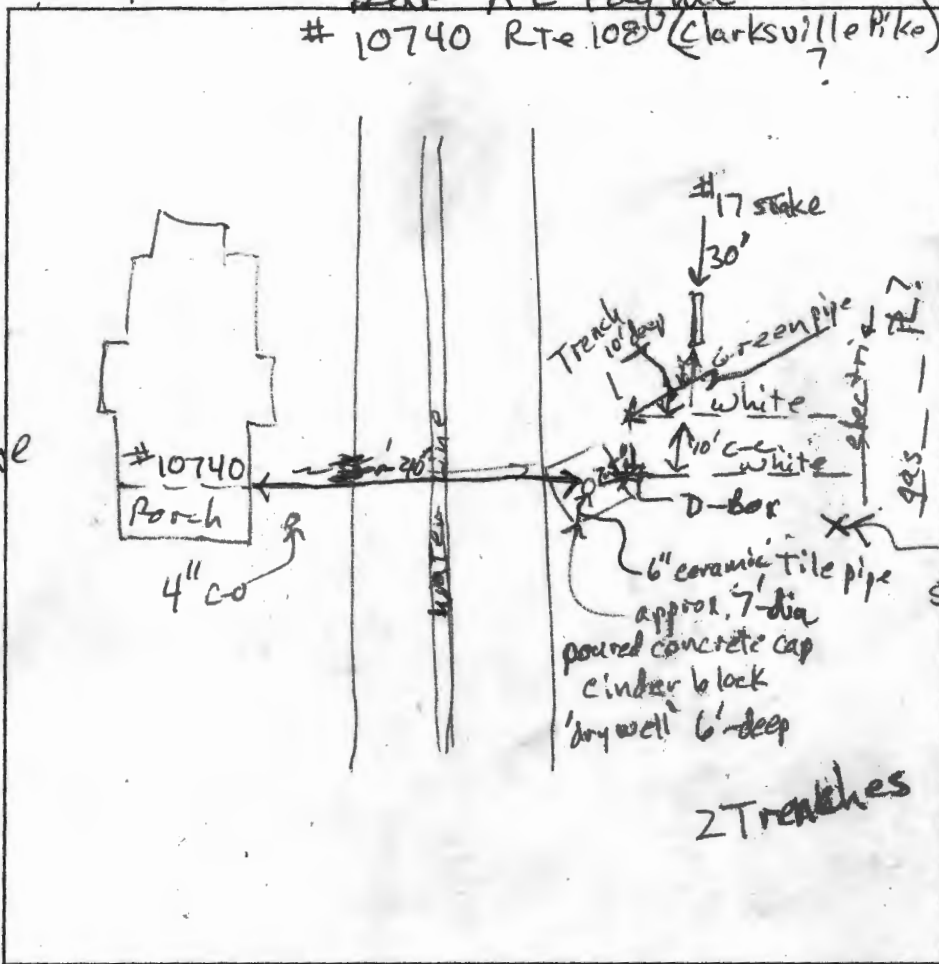 # 10740 Rte 108 (Clarksville Pike)
?
#17 stake
30'
Trench
10' deep
Green pipe
White
10' c-c
White
electric
gas
PL?
#10740
Porch
4" co
Water line
D-Box
6" ceramic tile pipe
approx. 7'-dia
poured concrete cap
cinder block
'dry well' 6'-deep
2 Trenches